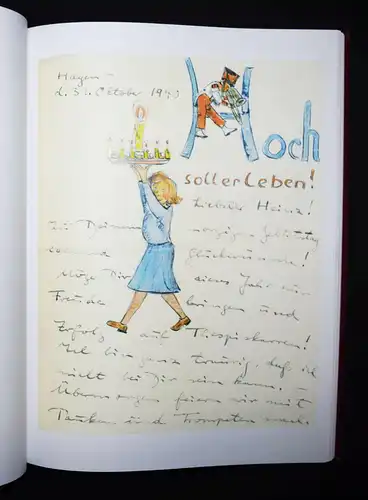 Hagen -
d. 31. Oktober 19
Hoch
soll er Leben!
Liebster Heinz!
zu Deinem morgigen Geburtstag
Glückwünsche!
Möge Dir dieses Jahr nur
Freude bringen und
Erfolg auf Thespiskarren!
bin ganz traurig, daß ich
nicht bei Dir sein kann. -
Übermorgen feiern wir mit
Pauken und Trompeten nach.